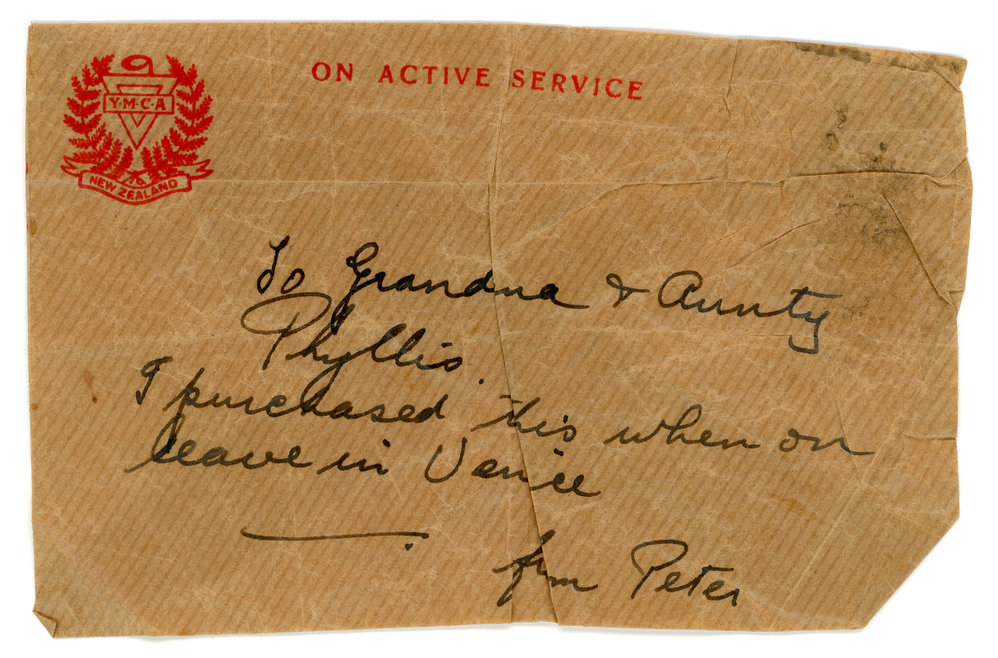 ON ACTIVE SERVICE
Y·M·C·A
NEW ZEALAND
To Grandna & Aunty
Phyllis.
I purchased this when on
leave in Venice
from Peter